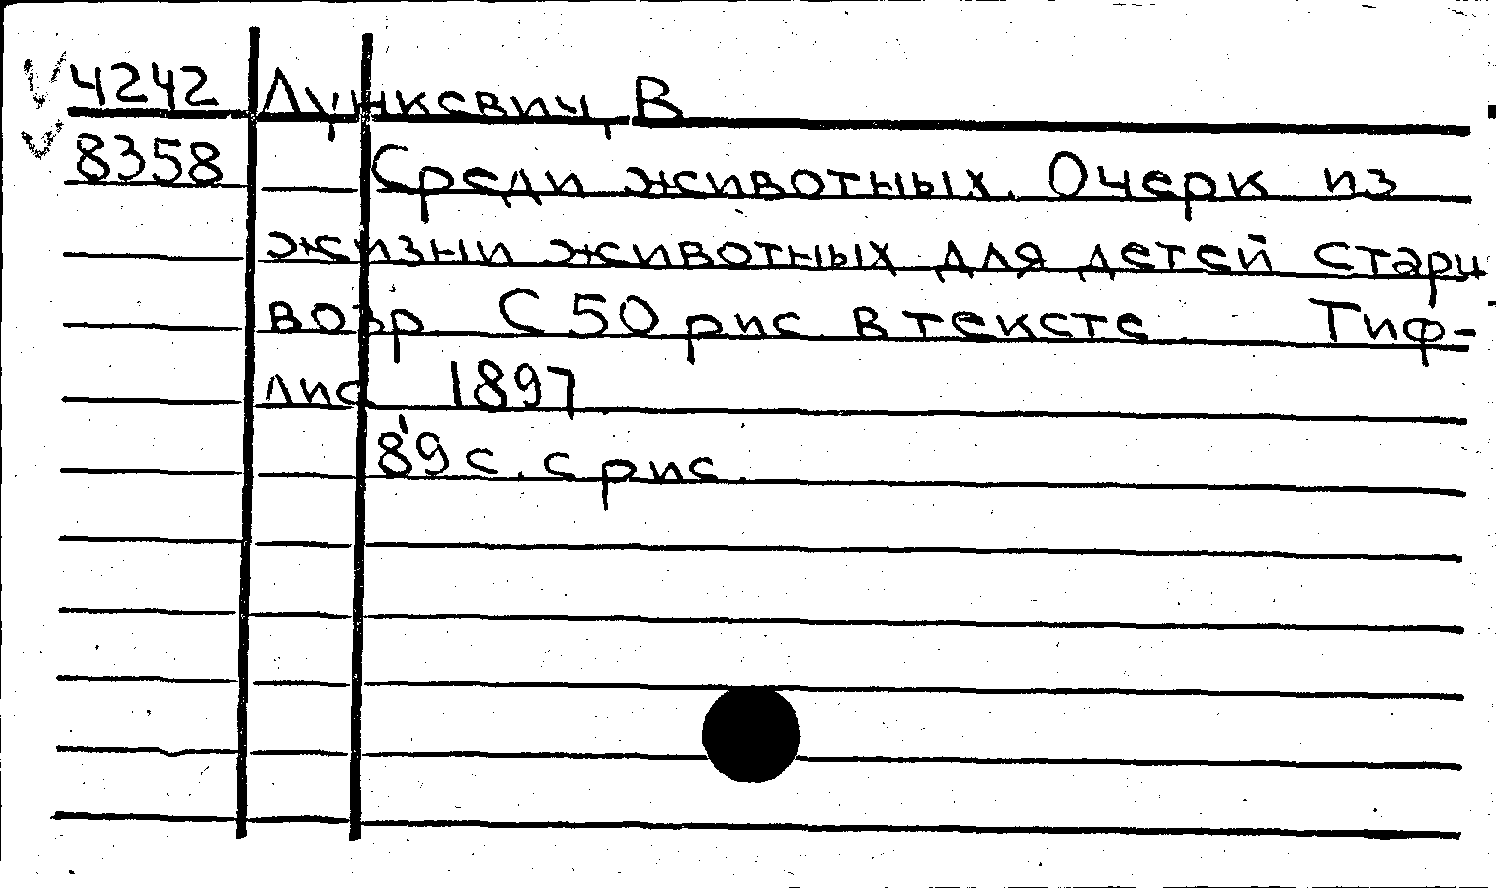 4242 Лункевич, В
8358 Среди животных. Очерк из
жизни животных для детей старш
возр. С 50 рис. в тексте Тиф-
лис 1897
89 с. с рис.